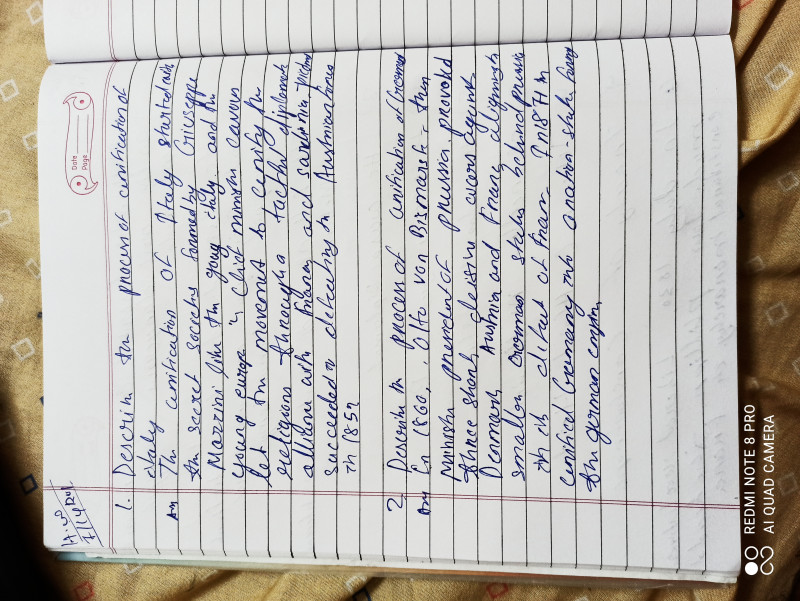 H.W
Date
Page
1. Describe the process of unification of
Italy
Ans The unification of Italy started with
the secret societies formed by Giuseppe
Mazzini like the young Italy and the
young europe is Chief minister cavour
led the to unify the
religions through a tactful diplomatic
alliance with and sardinia
succeeded in defeating in Austrian forces
in 1859
2. Describe the process of unification of
Ans In 1860, Otto von Bismarck - then
president of prussia, provoked
three short, wars against
Denmark, Austria and France aligning
smaller German states behind prussia
in of In 1871 he
unified Germany into a nation-state
the german
REDMI NOTE 8 PRO
AI QUAD CAMERA